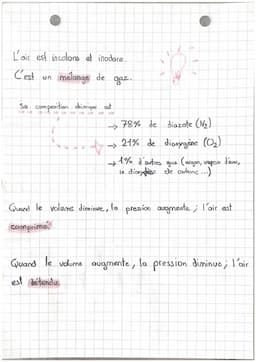 L'air est incolore et inodore.
C'est un mélange de gaz.
Sa composition chimique est
→ 78% de diazote (N₂)
→ 21% de dioxygène (O₂)
→ 1% d'autres gaz (argon, vapeur d'eau,
le dioxyde de carbone ...)
Quand le volume diminue, la pression augmente ; l'air est
comprimé.
Quand le volume augmente, la pression diminue ; l'air
est détendu.